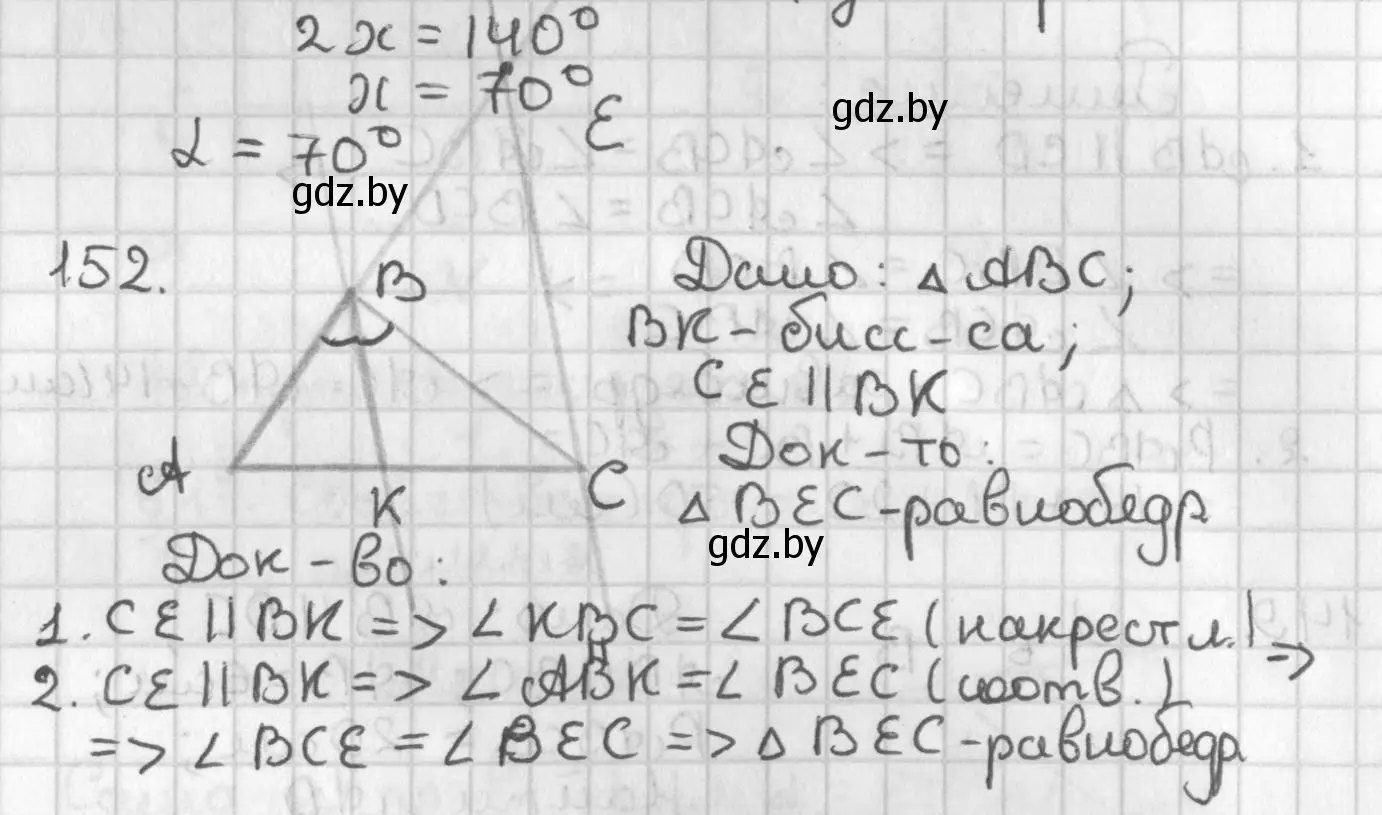 2x = 140°
x = 70°
α = 70°
gdz.by
gdz.by
152.
E
B
A
K
C
Дано: △ ABC;
BK - бисс-са;
CE || BK
Док-ть:
△ BEC - равнобедр
gdz.by
Док-во:
1. CE || BK => ∠ KBC = ∠ BCE (накрест л.)
=>
2. CE || BK => ∠ ABK = ∠ BEC (соотв.)
=> ∠ BCE = ∠ BEC => △ BEC - равнобедр